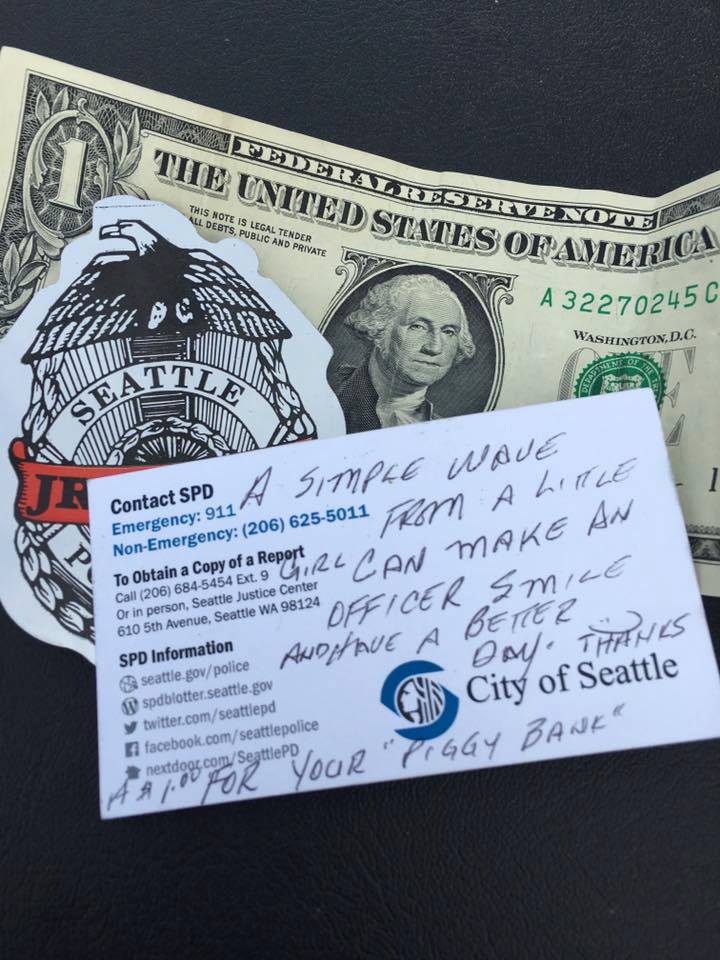 1
FEDERAL RESERVE NOTE
THE UNITED STATES OF AMERICA
THIS NOTE IS LEGAL TENDER
ALL DEBTS, PUBLIC AND PRIVATE
A 32270245 C
WASHINGTON, D.C.
DEPARTMENT OF THE
1
SEATTLE
JR
PO
A SIMPLE WAVE
FROM A LITTLE
GIRL CAN MAKE AN
OFFICER SMILE
AND HAVE A BETTER
DAY. THANKS
A $1.00 FOR YOUR "PIGGY BANK"
Contact SPD
Emergency: 911
Non-Emergency: (206) 625-5011
To Obtain a Copy of a Report
Call (206) 684-5454 Ext. 9
Or in person, Seattle Justice Center
610 5th Avenue, Seattle WA 98124
SPD Information
seattle.gov/police
spdblotter.seattle.gov
twitter.com/seattlepd
facebook.com/seattlepolice
nextdoor.com/SeattlePD
City of Seattle